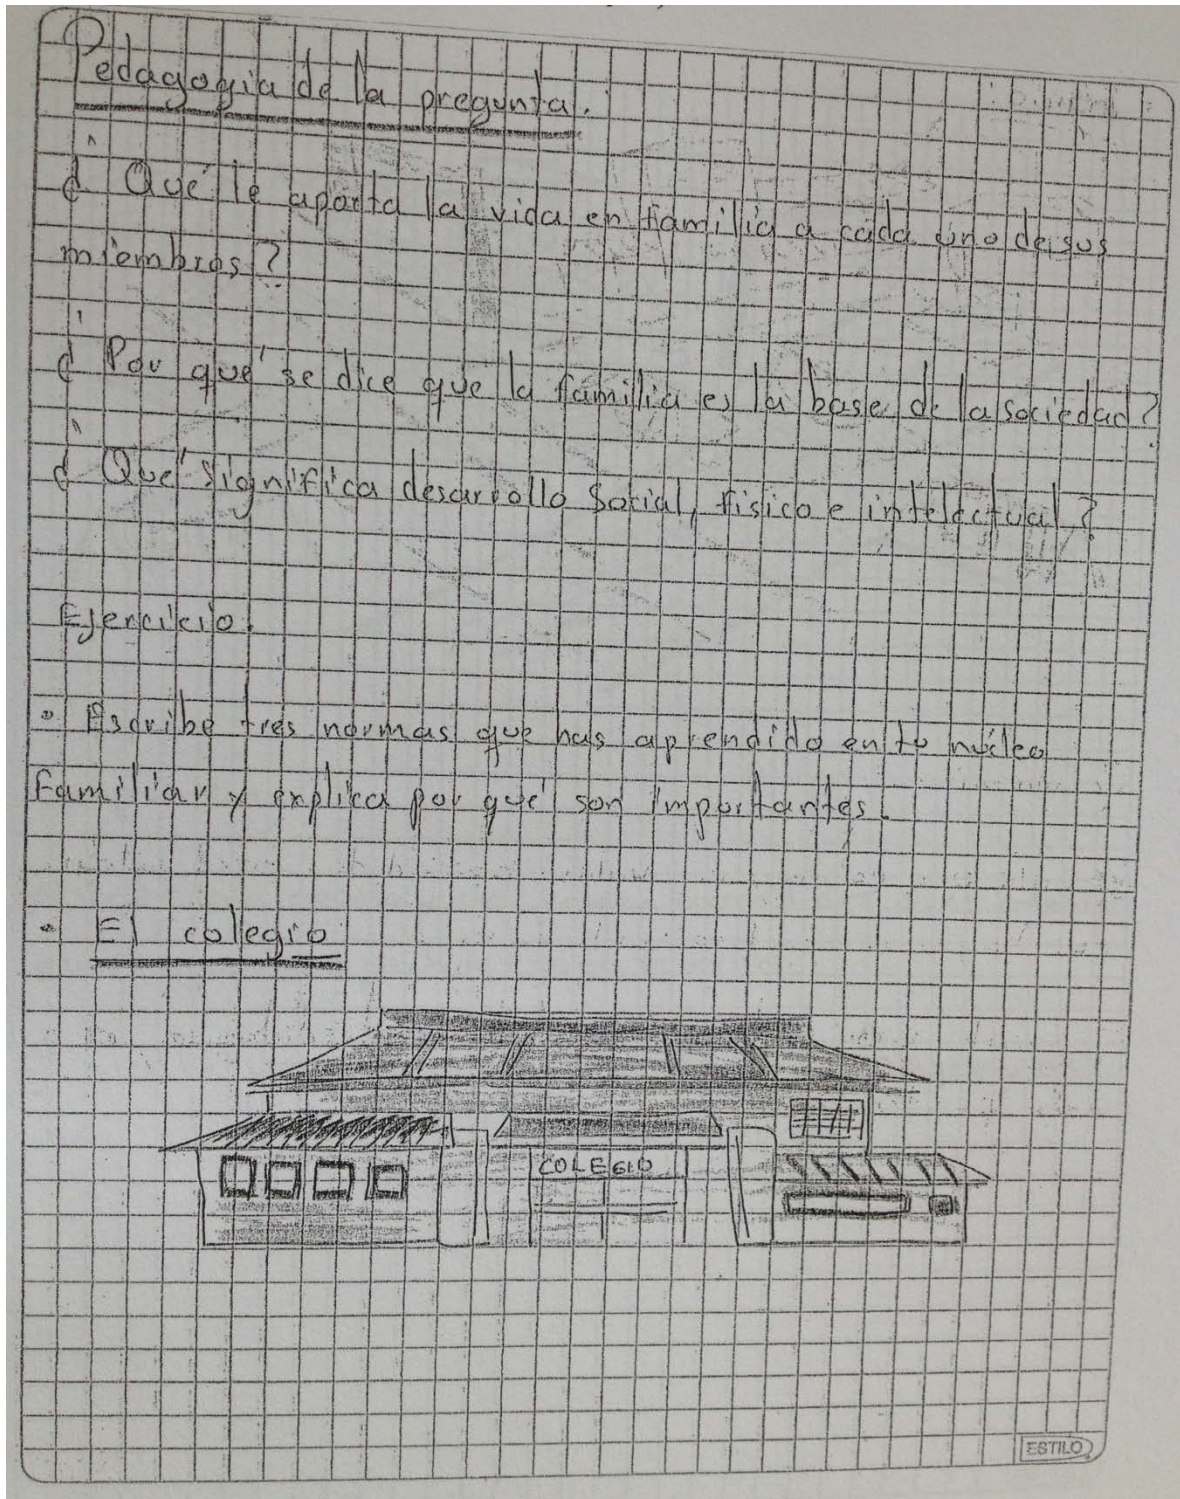 Pedagogia de la pregunta.
¿ Qué le aporta la vida en familia a cada uno de sus
miembros ?
¿ Por qué se dice que la familia es la base de la sociedad ?
¿ Qué significa desarrollo Social, físico e intelectual ?
Ejercicio.
Escribe tres normas que has aprendido en tu núcleo
Familiar y explica por qué son importantes.
El colegio
COLEGIO
ESTILO